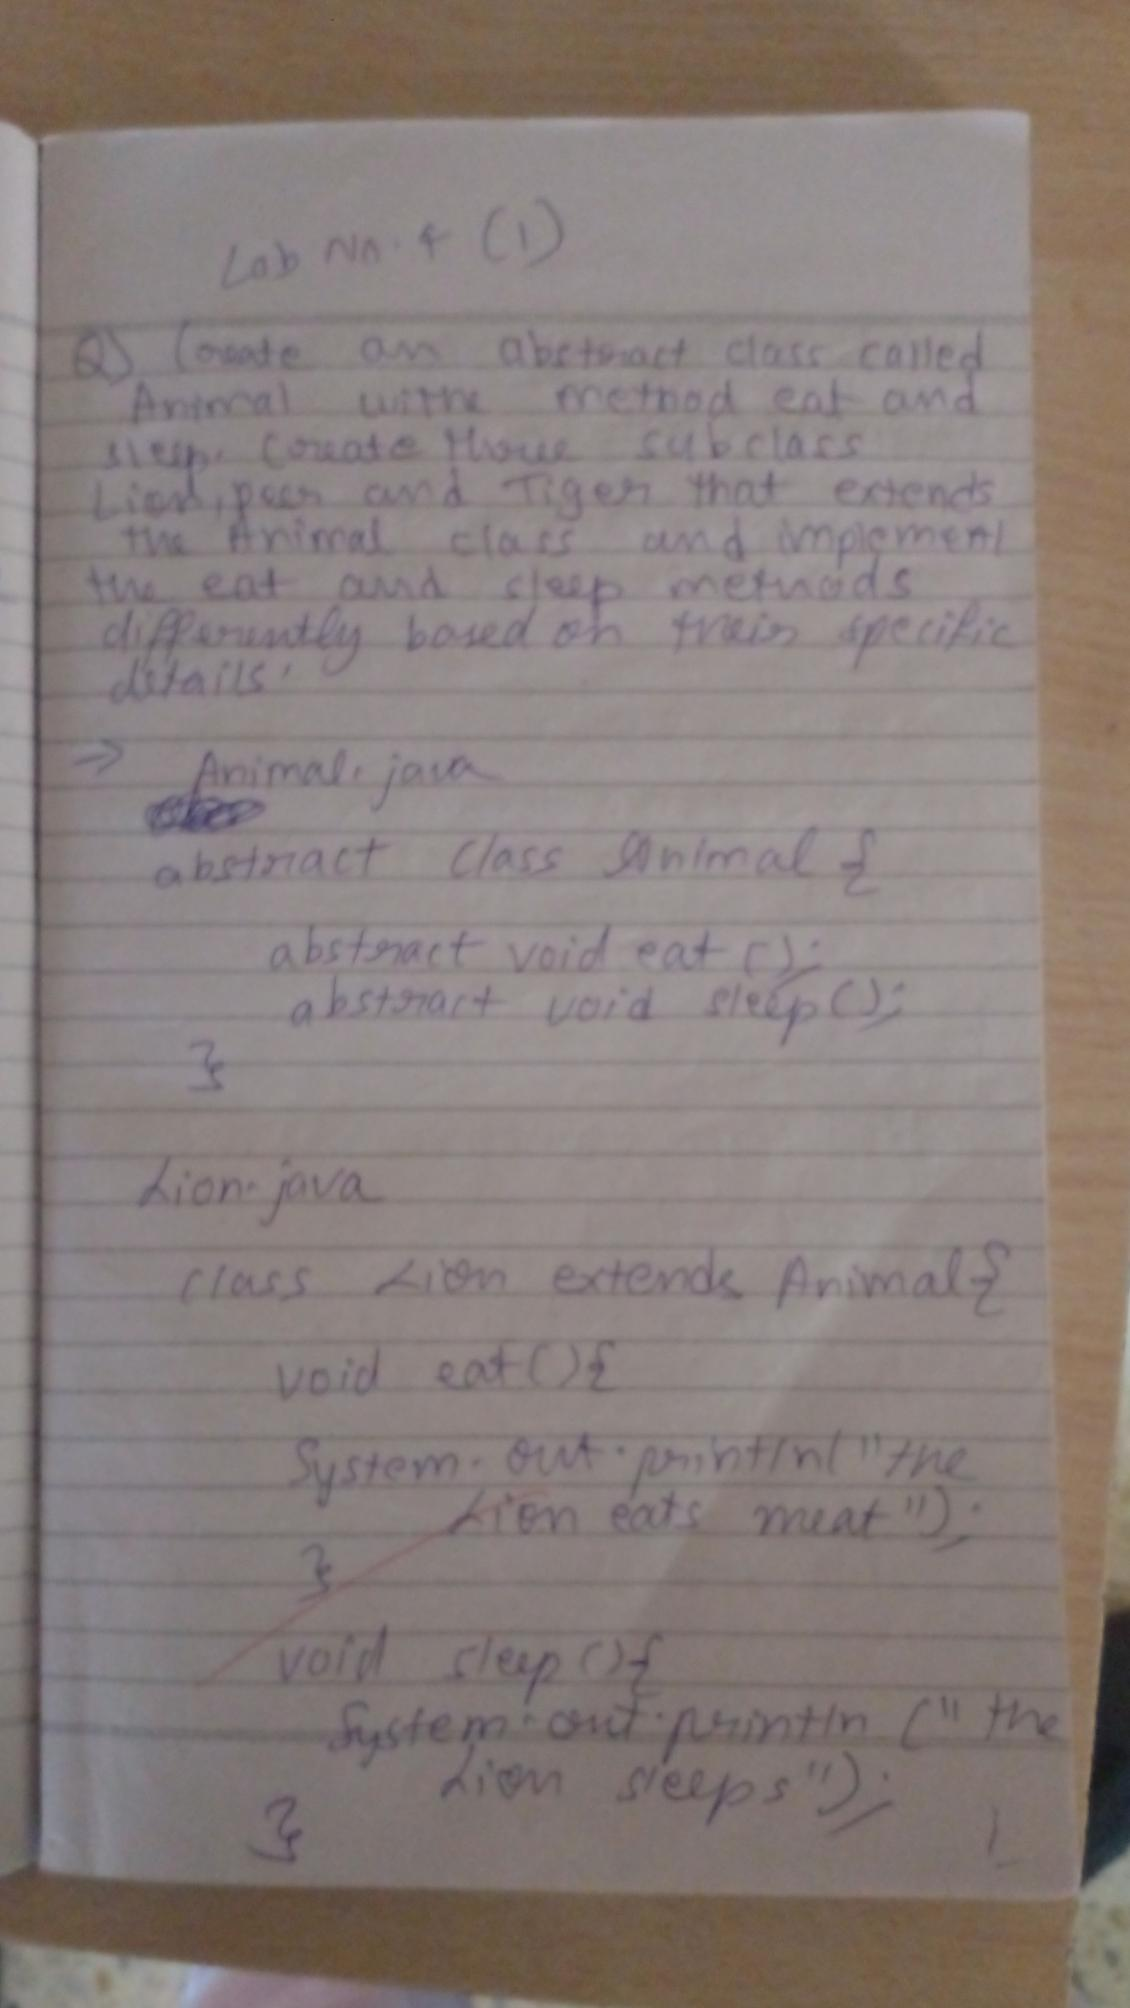 Lab No. 4 (1)
Q) Create an abstract class called
Animal withe method eat and
sleep. Create three subclass
Lion, Deer and Tiger that extends
the Animal class and implement
the eat and sleep methods
differently based on their specific
details.
→ Animal.java
abstract class Animal {
abstract void eat ();
abstract void sleep();
}
Lion.java
class Lion extends Animal{
void eat(){
System.out.println("the
Lion eats meat");
}
void sleep(){
System.out.println ("the
Lion sleeps");
}